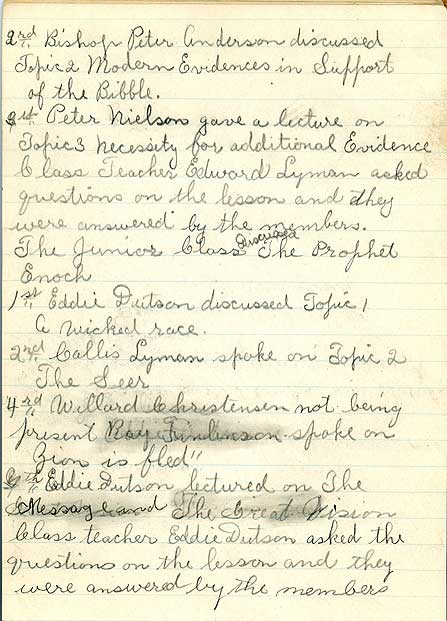 2nd Bishop Peter Anderson discussed
Topic 2 Modern Evidences in Support
of the Bibble.
Peter Nielson gave a lecture on
Topic 3 Necessity for additional Evidence
Class Teacher Edward Lyman asked
questions on the lesson and they
were answered by the members.
The Junior Class discussed The Prophet
Enoch
1st Eddie Dutson discussed Topic 1
A wicked race.
2nd Callis Lyman spoke on Topic 2
The Seer
4rd Willard Christensen not being
present Ray Tomlinson spoke on
Zion is fled"
Eddie Dutson lectured on The
Message and The Great Vision
Class teacher Eddie Dutson asked the
questions on the lesson and they
were answered by the members